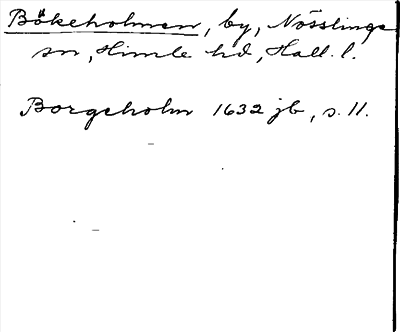 Bökeholmen, by, Nösslinge
sn, Himle hd, Hall. l.
Borgeholm 1632 jb, s. 11.